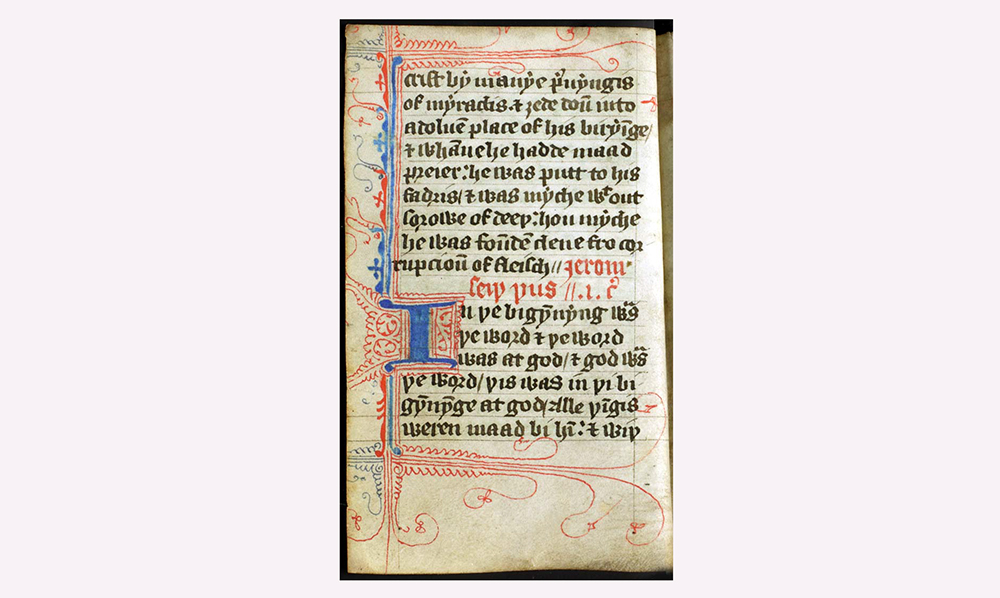 crist bẏ manẏe p̃uẏngis
of mẏraclis. & ȝede doũ into
a doluẽ place of his birẏĩge/
& whãne he hadde maad
preier: he was putt to his
fadris/ & was mẏche wᵗout
sorowe of deeþ: hou mẏche
he was foũdẽ clene fro cor
rupcioũ of fleisch// Jerom
seiþ þus //.i. c̃
In þe bigẏ̃nẏng wᵃs
þe word & þe word
was at god/ & god wᵃs
þe word/ þis was in þi bi
gẏ̃nẏ̃ge at god/ alle þĩgis
weren maad bi hĩ: & wiþ